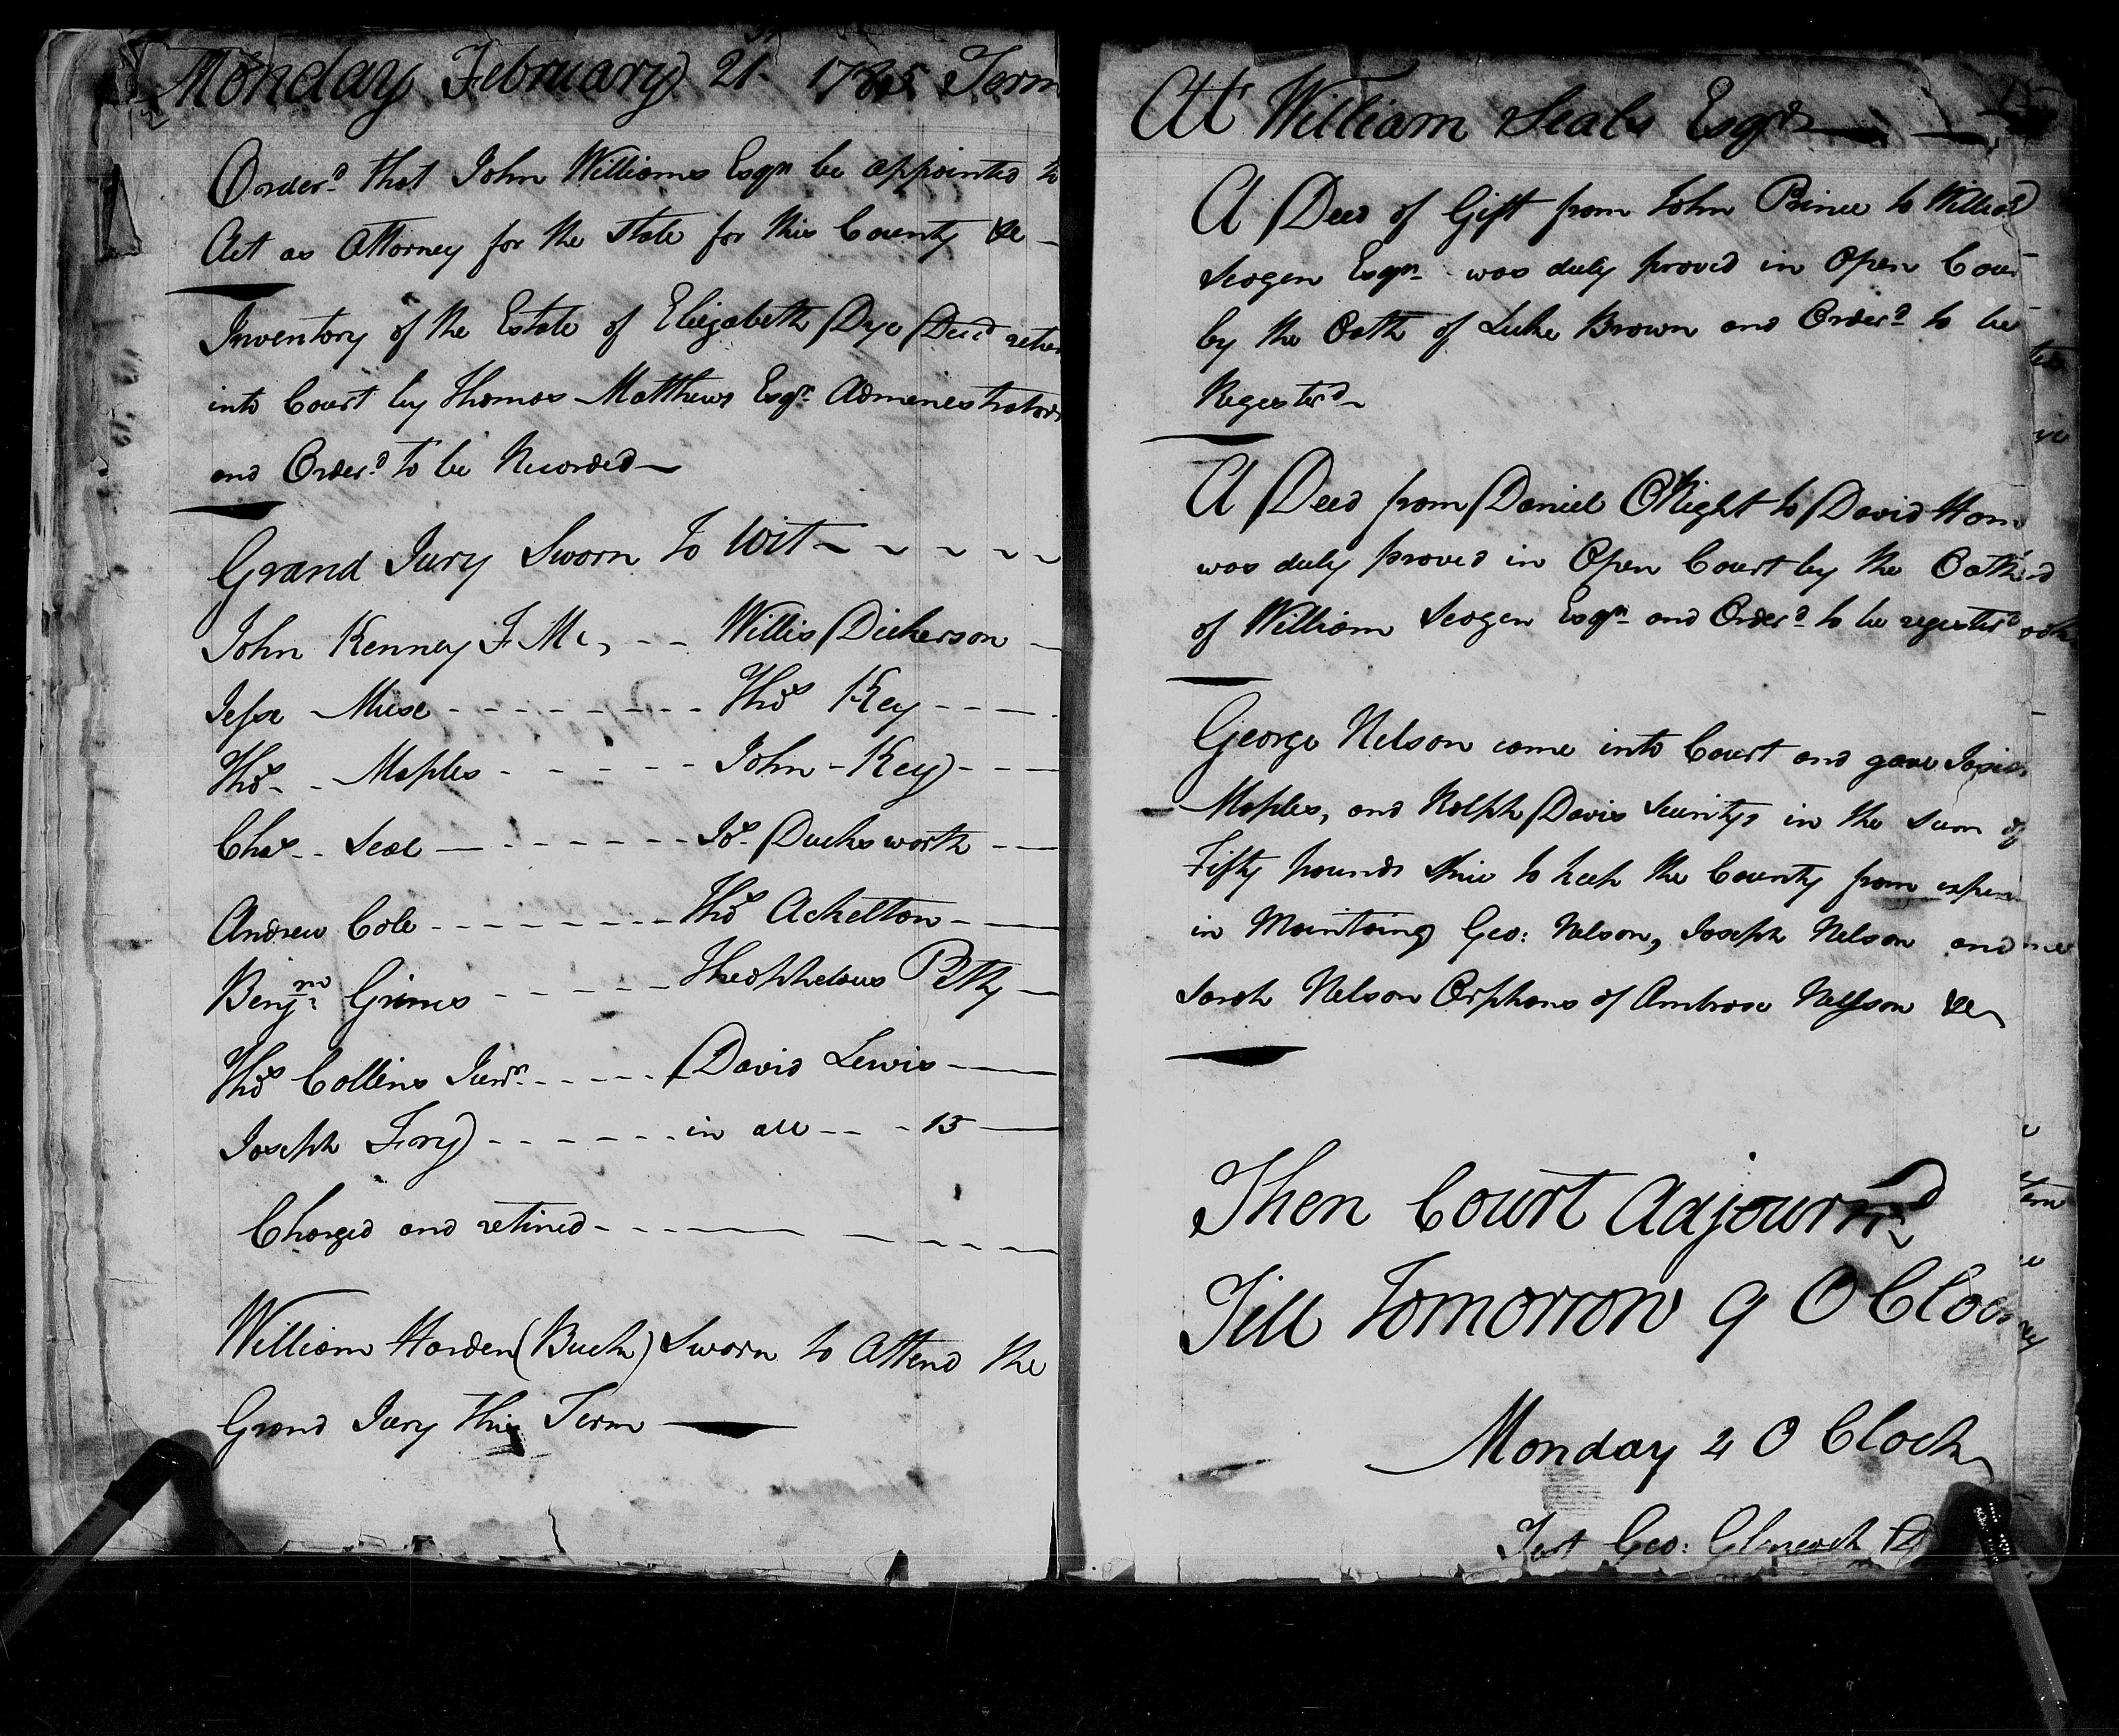 Monday February 21st 1785 Term
Order'd that John Williams Esqr be appointed to
Act as Attorney for the State for this County &c
Inventory of the Estate of Elizabeth Dye Decd
into Court by Thomas Matthews Esqr Administrator
and Order'd to be Recorded
Grand Jury Sworn to Wit
John Kenney F. M. Willis Dickerson
Jesse Muse Thos Key
Thos Maples John Key
Chas Seal Jos Ducksworth
Andrew Cole Thos Ackelton
Benjm Grimes Theophelous Petty
Thos Collins Junr David Lewis
Joseph Fry in all 15
Charged and retired
William Harden (Buck) Sworn to Attend the
Grand Jury this Term
At William Seals Esqrs
A Deed of Gift from John Prince to William
Scogen Esqr was duly proved in Open Cour
by the Oath of Luke Brown and Order'd to be
Register'd
A Deed from Daniel ONight to David Hom
was duly proved in Open Court by the Oath
of William Scogen Esqr and Order'd to be register'd
George Nelson came into Court and gave
Maples, and Ralph Davis Securitys in the Sum of
Fifty pounds Spice to keep the County from expen
in Maintaing Geo: Nelson, Joseph Nelson and
Sarah Nelson Orphans of Ambrose Nelson &c
Then Court Adjourn'd
Till Tomorrow 9 O Clock
Monday 4 O Clock
Test Geo: Glascock